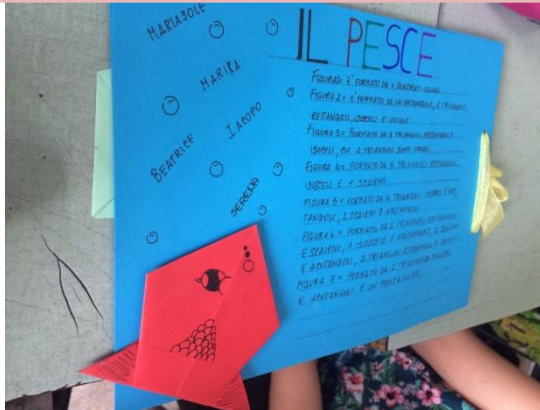 MARIASOLE
MARIKA
IACOPO
BEATRICE
SERENA
IL PESCE
FIGURA 1= È FORMATO DA 4 QUADRATI UGUALI
FIGURA 2= È FORMATO DA UN RETTANGOLO, 2 TRIANGOLI
RETTANGOLI, ISOSCELI E UGUALI
FIGURA 3= FORMATO DA 3 TRIANGOLI RETTANGOLI
ISOSCELI, CUI 2 TRIANGOLI SONO UGUALI
FIGURA 4= FORMATO DA 5 TRIANGOLI RETTANGOLI
ISOSCELI E 1 SCALENO
FIGURA 5= FORMATO DA 4 TRIANGOLI ISOSCELI E RET
TANGOLI, 2 SCALENI E ACUTANGOLI
FIGURA 6= FORMATO DA 2 TRIANGOLI RETTANGOLI
E SCALENI, 1 ISOSCELE E ACUTANGOLO, 2
E ACUTANGOLI, 2 TRIANGOLI RETTANGOLI E
FIGURA 7= FORMATO DA 2 TRIANGOLI
E ACUTANGOLI E UN PENTAGONO